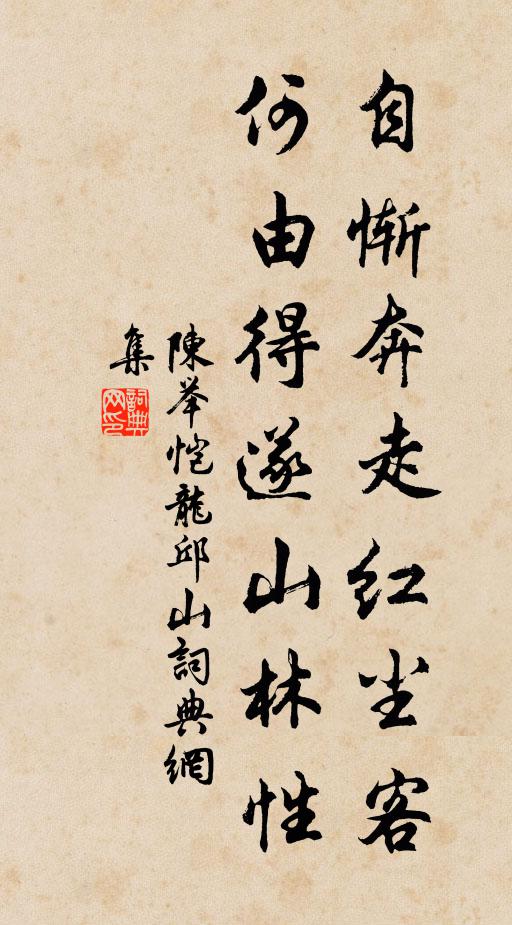 自惭奔走红尘客
何由得遂山林性
陳举恺龍邱山詞典網
集
詞典
网印